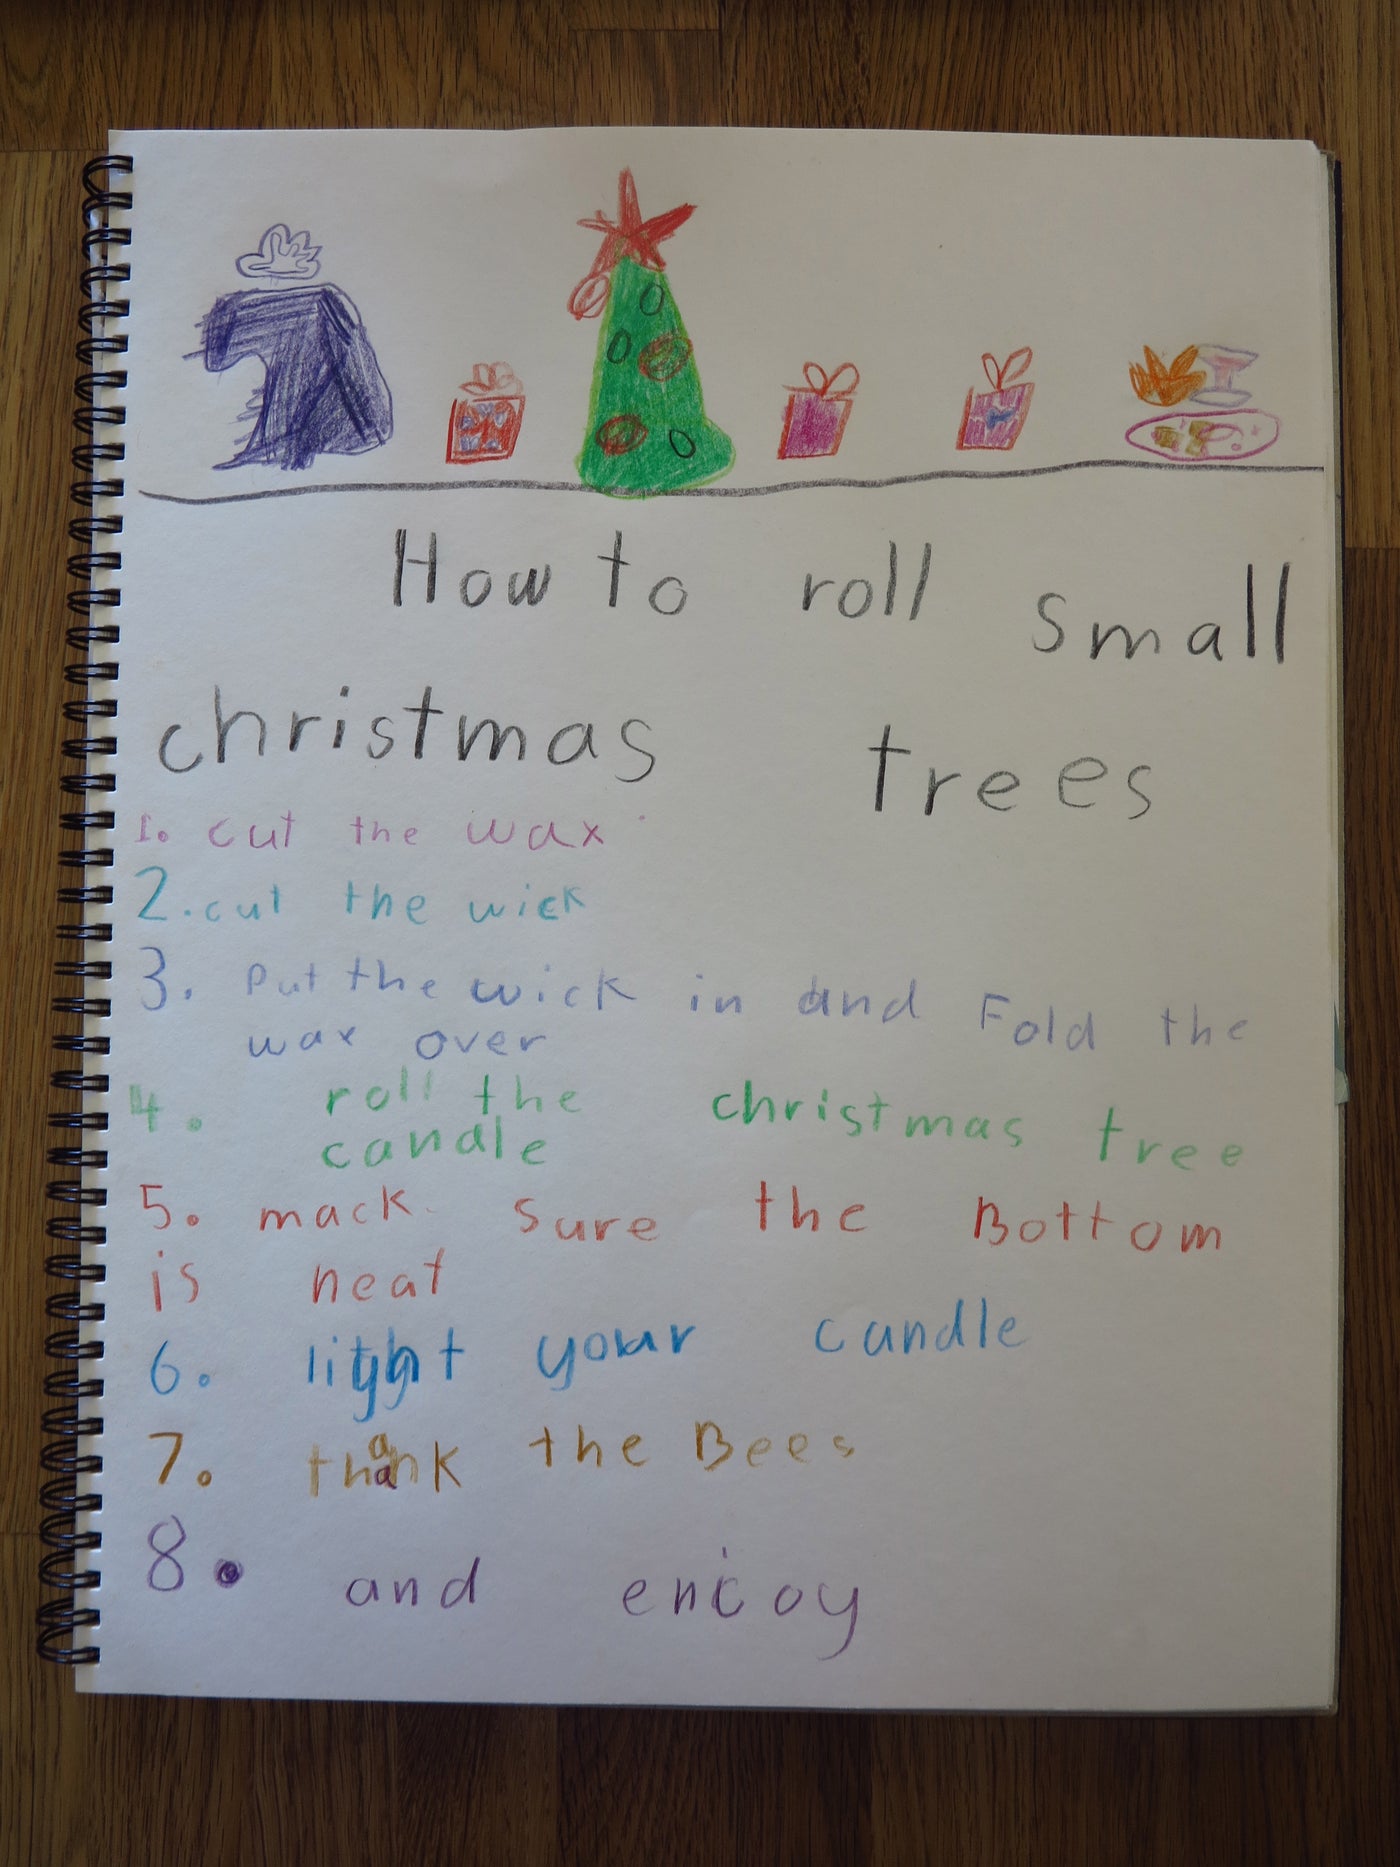 How to roll small
christmas trees
1. cut the wax
2. cut the wick
3. Put the wick in and Fold the
wax over
4. roll the christmas tree
candle
5. mack sure the Bottom
is neat
6. light your candle
7. thank the Bees
8. and enjoy